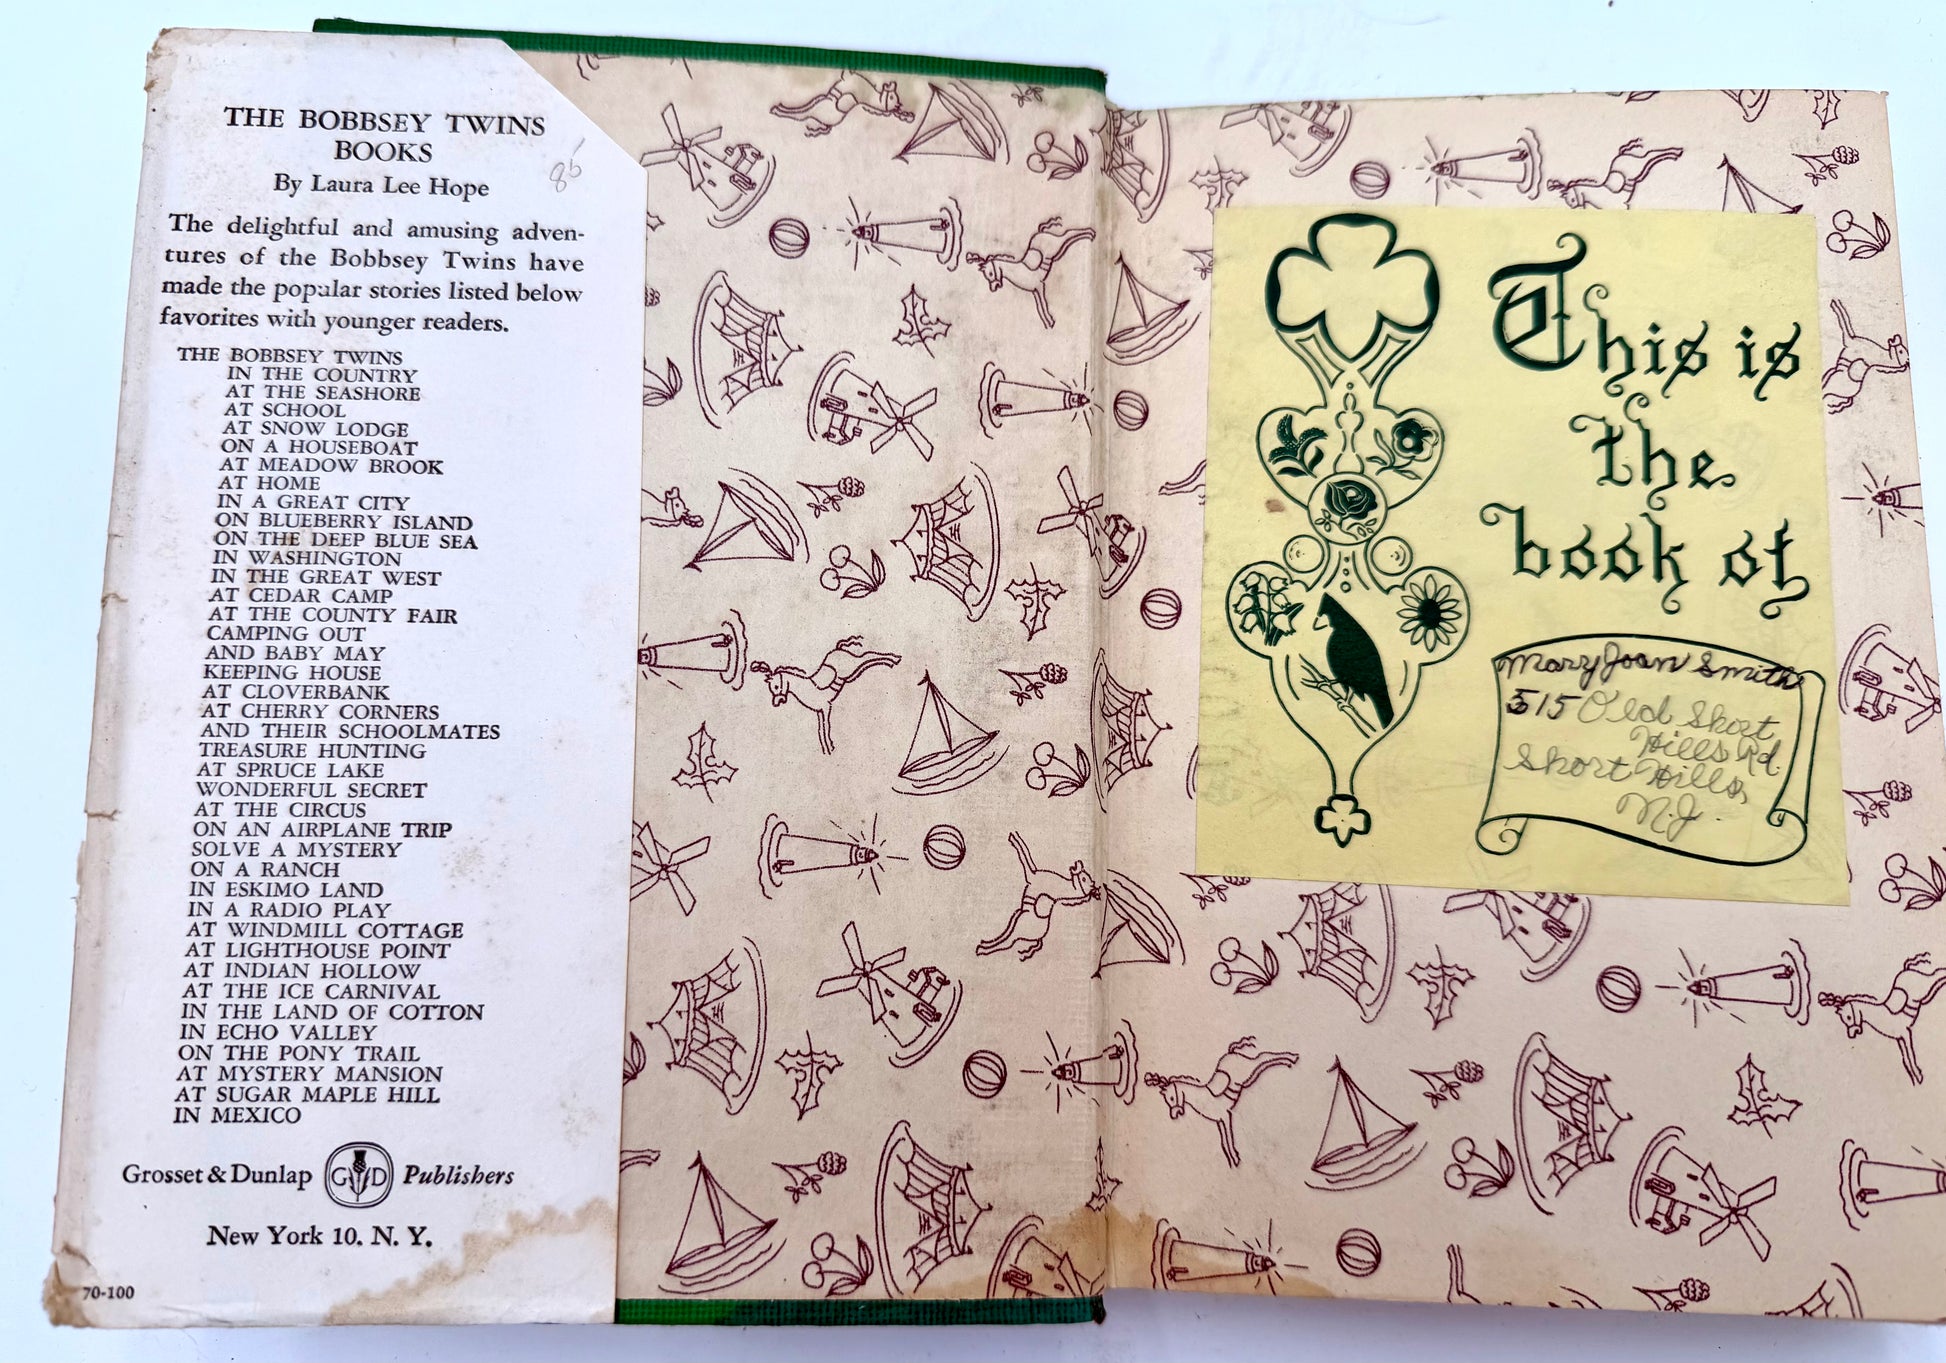 THE BOBBSEY TWINS
BOOKS
By Laura Lee Hope
85
The delightful and amusing adven-
tures of the Bobbsey Twins have
made the popular stories listed below
favorites with younger readers.
THE BOBBSEY TWINS
IN THE COUNTRY
AT THE SEASHORE
AT SCHOOL
AT SNOW LODGE
ON A HOUSEBOAT
AT MEADOW BROOK
AT HOME
IN A GREAT CITY
ON BLUEBERRY ISLAND
ON THE DEEP BLUE SEA
IN WASHINGTON
IN THE GREAT WEST
AT CEDAR CAMP
AT THE COUNTY FAIR
CAMPING OUT
AND BABY MAY
KEEPING HOUSE
AT CLOVERBANK
AT CHERRY CORNERS
AND THEIR SCHOOLMATES
TREASURE HUNTING
AT SPRUCE LAKE
WONDERFUL SECRET
AT THE CIRCUS
ON AN AIRPLANE TRIP
SOLVE A MYSTERY
ON A RANCH
IN ESKIMO LAND
IN A RADIO PLAY
AT WINDMILL COTTAGE
AT LIGHTHOUSE POINT
AT INDIAN HOLLOW
AT THE ICE CARNIVAL
IN THE LAND OF COTTON
IN ECHO VALLEY
ON THE PONY TRAIL
AT MYSTERY MANSION
AT SUGAR MAPLE HILL
IN MEXICO
Grosset & Dunlap G D Publishers
New York 10, N. Y.
70-100
This is
the
book of
Mary Joan Smith
515 Old Short
Hills Rd.
Short Hills,
N.J.